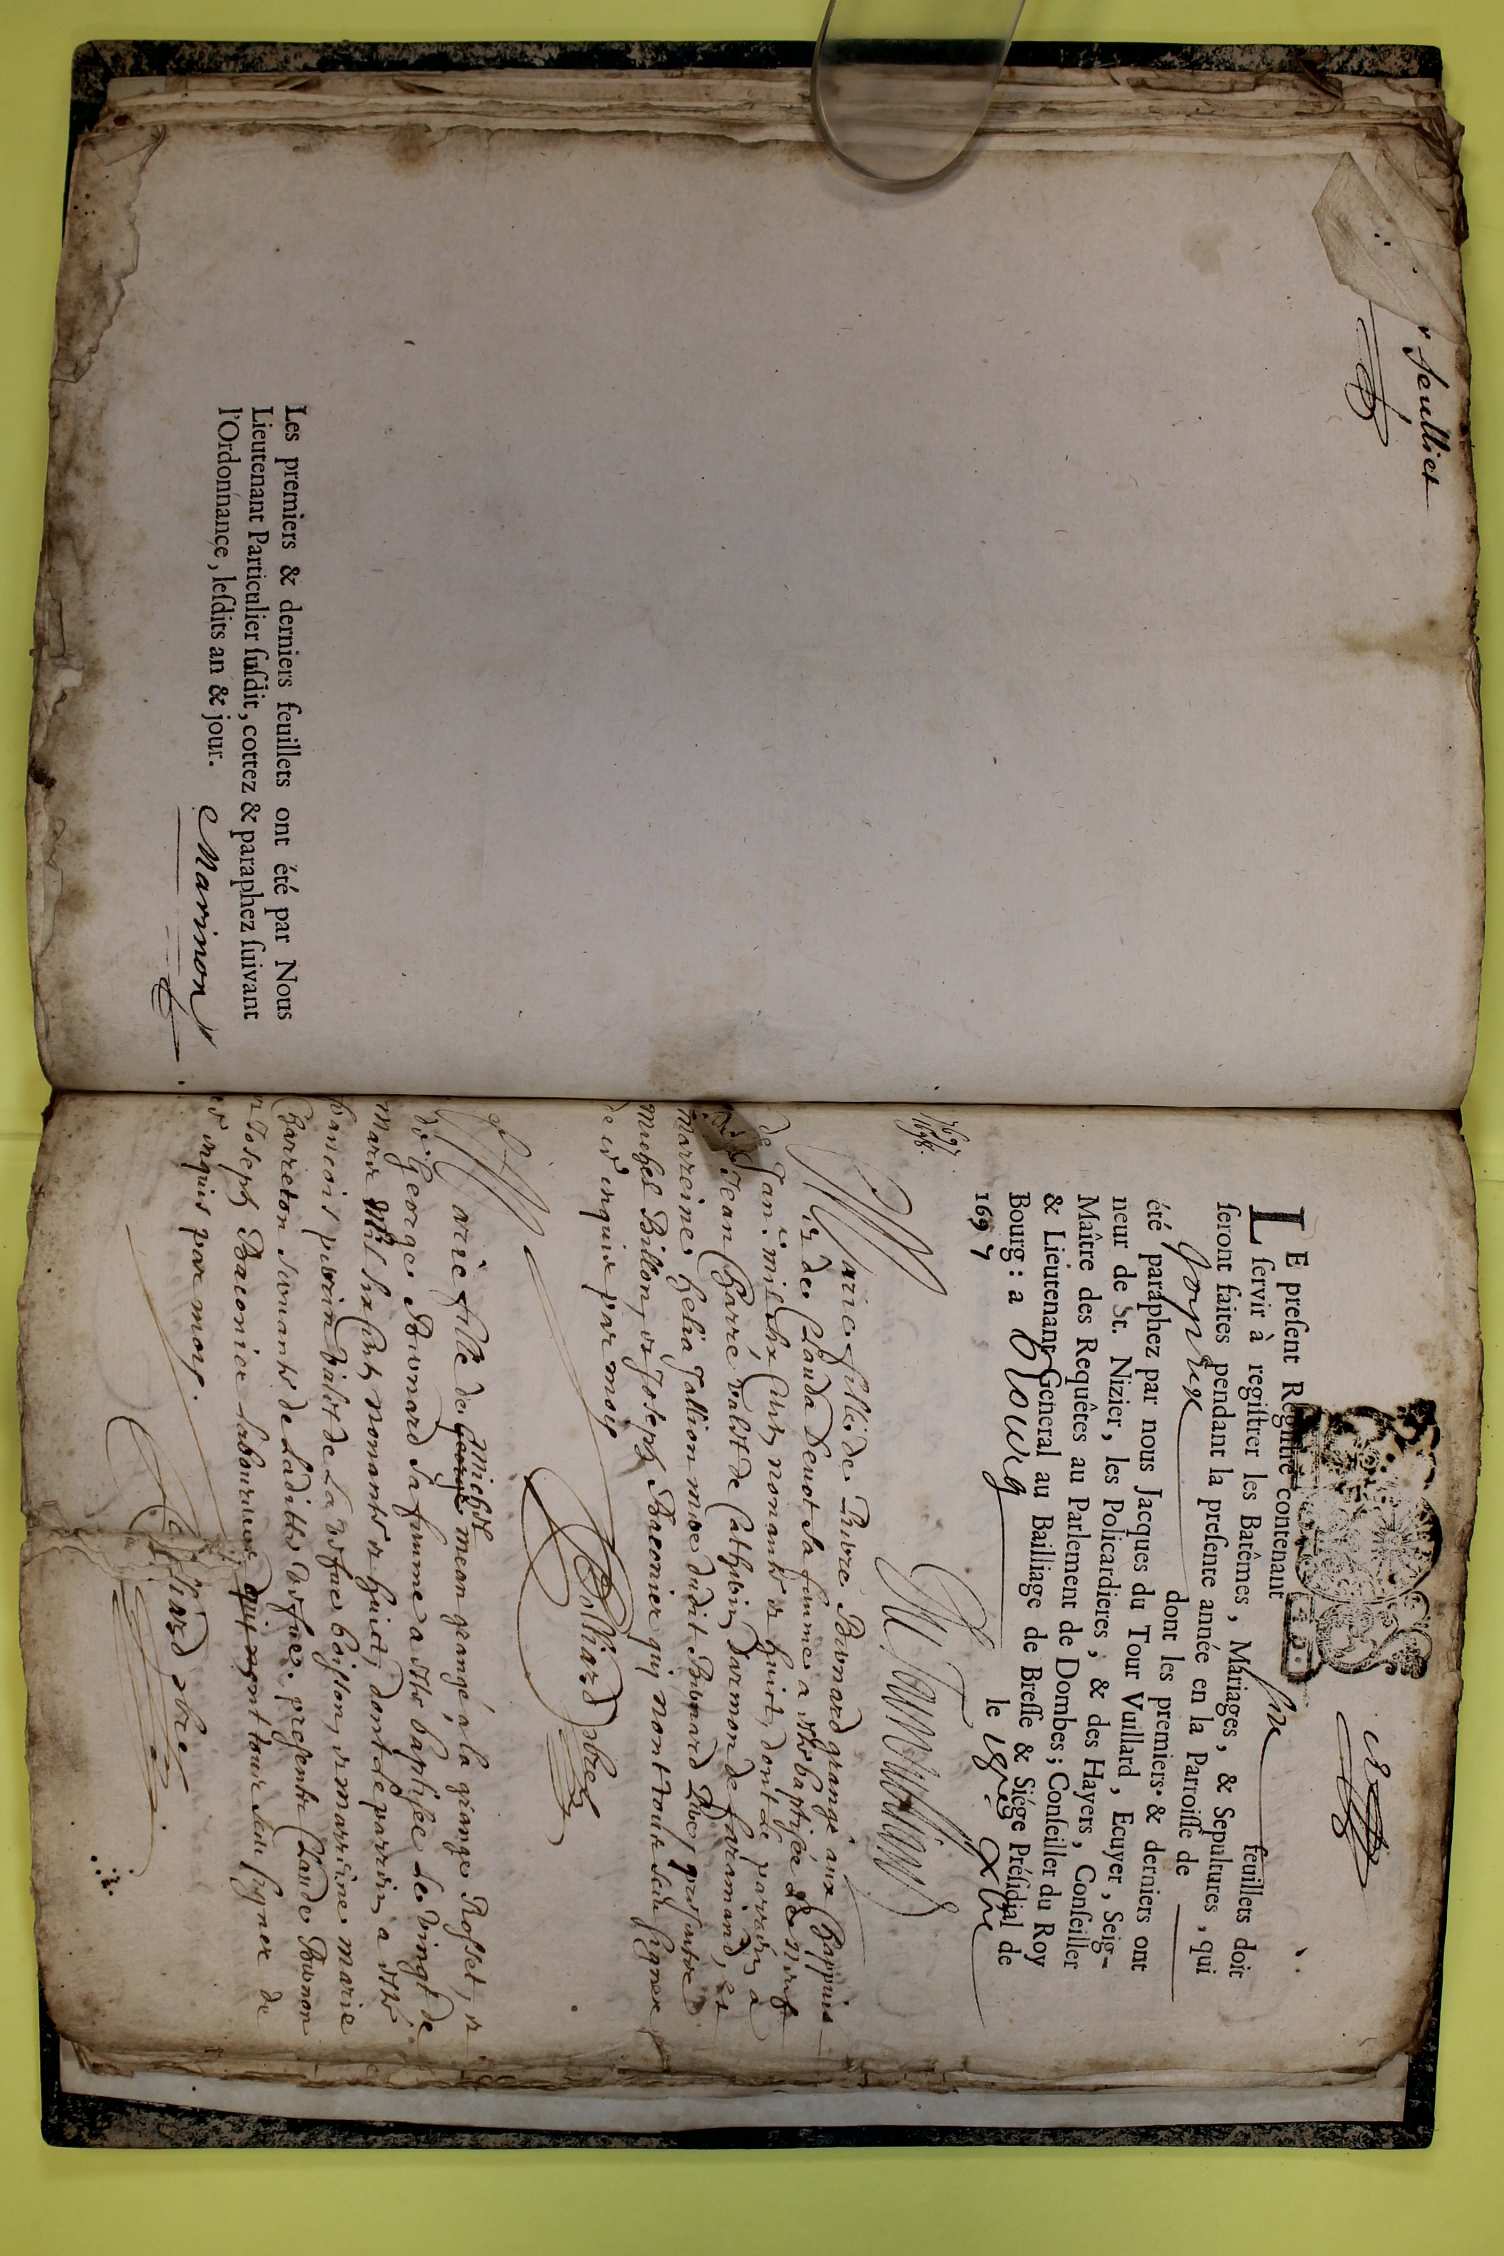 r feulliet
Les premiers & derniers feuillets ont été par Nous
Lieutenant Particulier ſuſdit, cottez & paraphez ſuivant
l'Ordonnance, leſdits an & jour. Marinon
LE preſent Regiſtre contenant six feuillets doit
ſervir à regiſtrer les Batêmes, Mariages, & Sepultures, qui
ſeront faites pendant la preſente année en la Parroiſſe de
dont les premiers & derniers ont
été paraphez par nous Jacques du Tour Vuillard, Ecuyer, Seig-
neur de St. Nizier, les Policardieres, & des Hayers, Conſeiller
Maître des Requêtes au Parlement de Dombes; Conſeiller du Roy
& Lieutenant General au Bailliage de Breſſe & Siége Préſidial de
Bourg: a bourg le 18e xbre
1697
1697
1698.
Marie fille de Pierre Bernard grangé aux Chappuis
et de Clauda Devot sa femme a este baptisée le neuf
de Janr. mil six cent nonante et huict, dont le parrain a
esté Jean Charré valet de Cathin Darmon de faramand, et
marreine helia Jallion mere dudit Bernard Pere, presentz
Michel Billon, et Joseph Baconier qui nont tous sceu signer
de ce enquis par moy
Colliard pbre
Marie fille de george Michel meon grangé a la grange Rosset, et
de George Bernard sa femme a este baptisée le vingt de
mars mil six cent nonante et huict, dont le parrin a esté
francois perrin valet de la vefve boisson, et marrine marie
Charreton servante de Laditte vefve. presents Claude Bernon
et Joseph Baconier laboureur qui n'ont tous sceu signer de
ce enquis par moy.
Colliard pbre